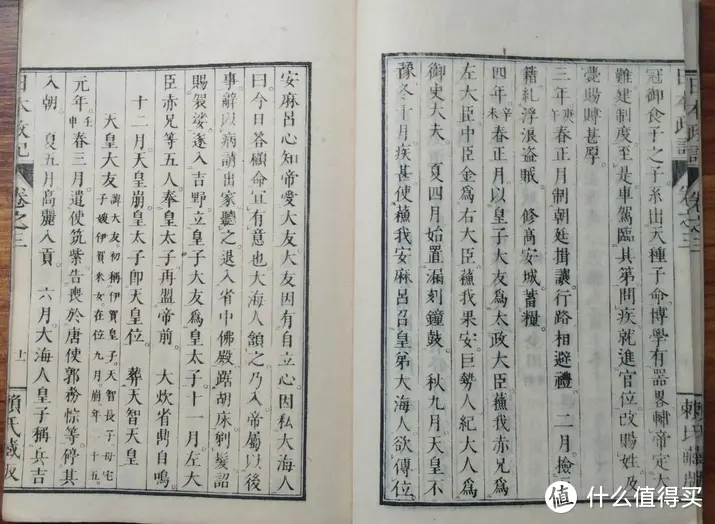 日本政記
卷之三
冠御食子之子系出天種子命博學有器畧輔帝定大
難建制度至是車駕臨其第問疾就進官位改賜姓及
薨賜賻甚厚。
三年庚午春正月制朝廷揖讓行路相避禮。二月撿
籍糺浮浪盜賊。修高安城蓄糧。
四年辛未春正月以皇子大友為太政大臣蘓我赤兄為
左大臣中臣金為右大臣蘓我果安巨勢人紀大人為
御史大夫。夏四月始置漏刻鐘鼓。秋九月天皇不
豫冬十月疾甚使蘓我安麻呂召皇弟大海人欲傳位
安麻呂心知帝愛大友大友因有自立心因私大海人
曰今日答顧命宜有意也大海人頷之乃入帝屬以後
事辭以病請出家聽之退入省中佛殿踞胡床剃髮詔
賜袈裟遂入吉野立皇子大友爲皇太子十一月左大
臣赤兄等五人奉皇太子再盟帝前。大炊省鼎自鳴
十二月天皇崩皇太子卽天皇位。葬天智天皇
天皇大友諱大友。初稱伊賀皇子。天智長子母宅
子媛伊賀釆女在位九月。崩年
元年壬申春三月遣使筑紫告喪於唐使郭務悰等停其
入朝。夏五月高麗入貢。六月大海人皇子稱兵吉
日本政記
卷之三
十一
賴氏藏版
值 什么值得买